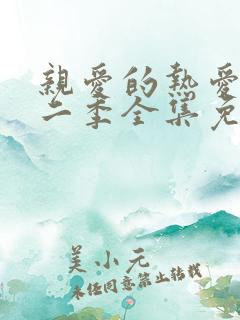 親愛的熱愛
二季全集免
美小元
未经同意禁止转载